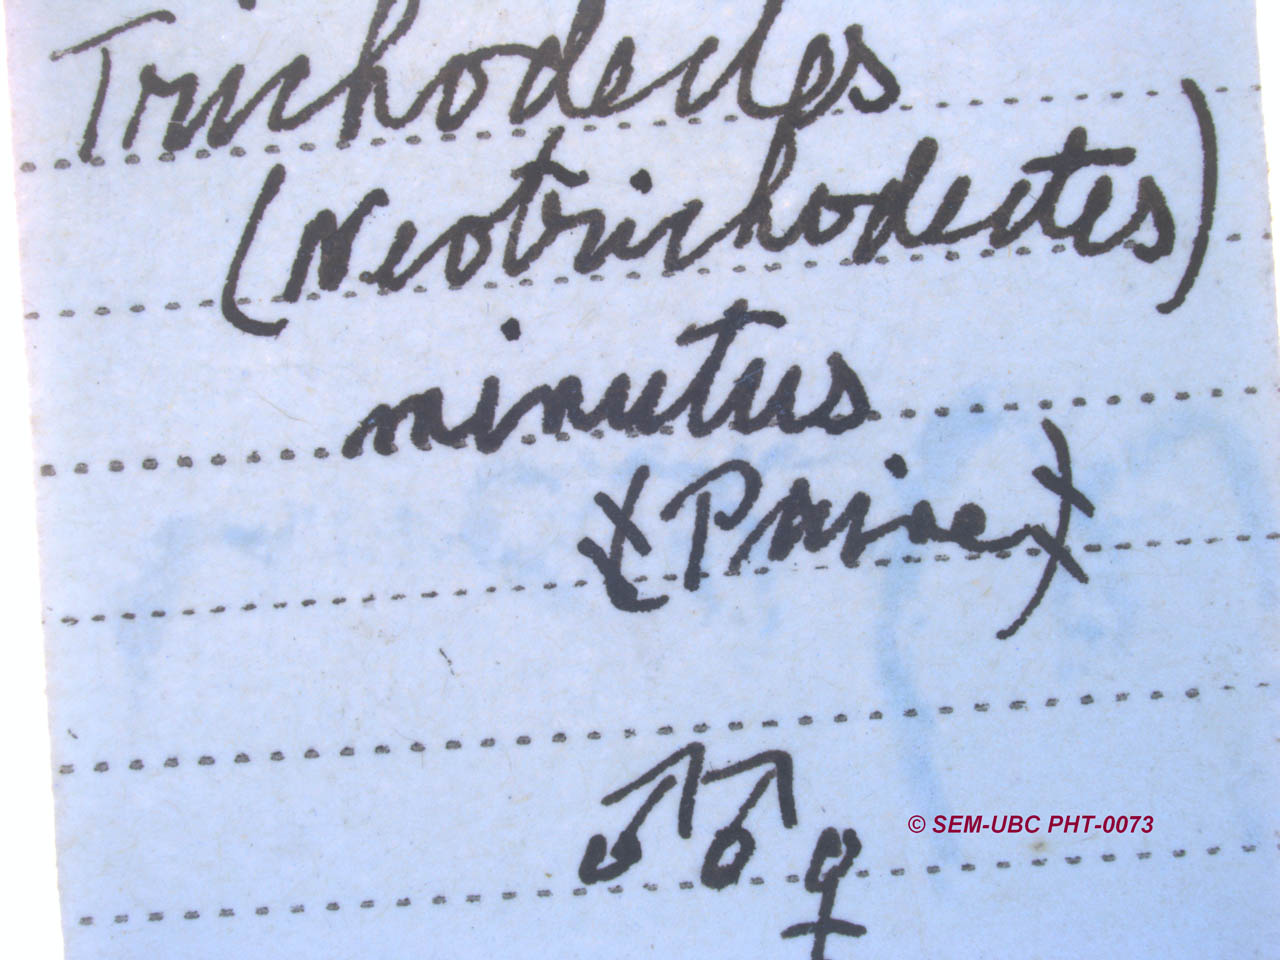 Trichodectes
(Neotrichodectes)
minutus
(Paine)
♂♂♀
© SEM-UBC PHT-0073